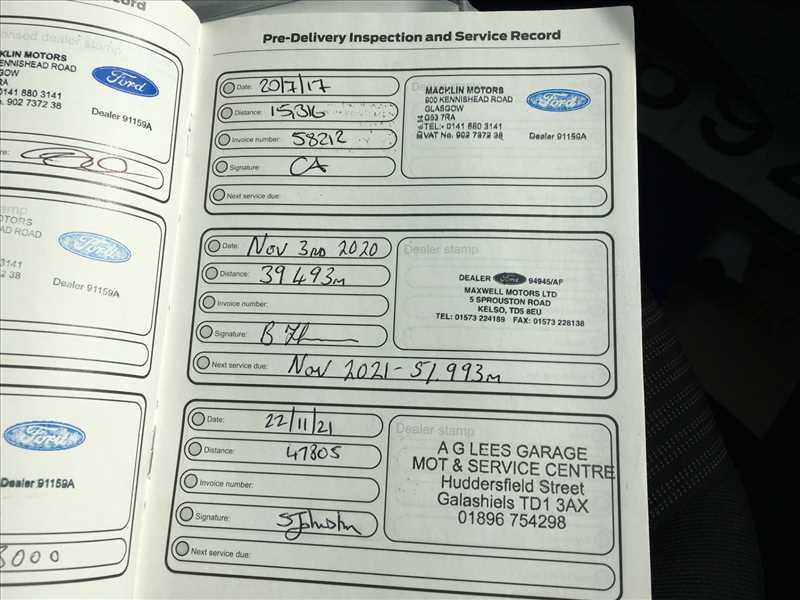 ord
orised dealer stamp
KLIN MOTORS
ENNISHEAD ROAD
GOW
RA
0141 880 3141
o. 902 7372 38
Ford
Dealer 91159A
re:
stamp
OTORS
AD ROAD
3141
2 38
Ford
Dealer 91159A
Ford
Dealer 91159A
3000
Pre-Delivery Inspection and Service Record
Date: 20/7/17
Distance: 15,316
Invoice number: 58212
Signature: CA
Next service due:
Dealer stamp
MACKLIN MOTORS
900 KENNISHEAD ROAD
GLASGOW
G53 7RA
TEL:- 0141 880 3141
VAT No. 902 7372 38
Ford
Dealer 91159A
Date: Nov 3RD 2020
Distance: 39 493m
Invoice number:
Signature: B
Next service due: Nov 2021 - 51,993m
Dealer stamp
DEALER Ford 94945/AF
MAXWELL MOTORS LTD
5 SPROUSTON ROAD
KELSO, TD5 8EU
TEL: 01573 224189 FAX: 01573 226138
Date: 22/11/21
Distance: 47805
Invoice number:
Signature: S Johnston
Next service due:
Dealer stamp
A G LEES GARAGE
MOT & SERVICE CENTRE
Huddersfield Street
Galashiels TD1 3AX
01896 754298